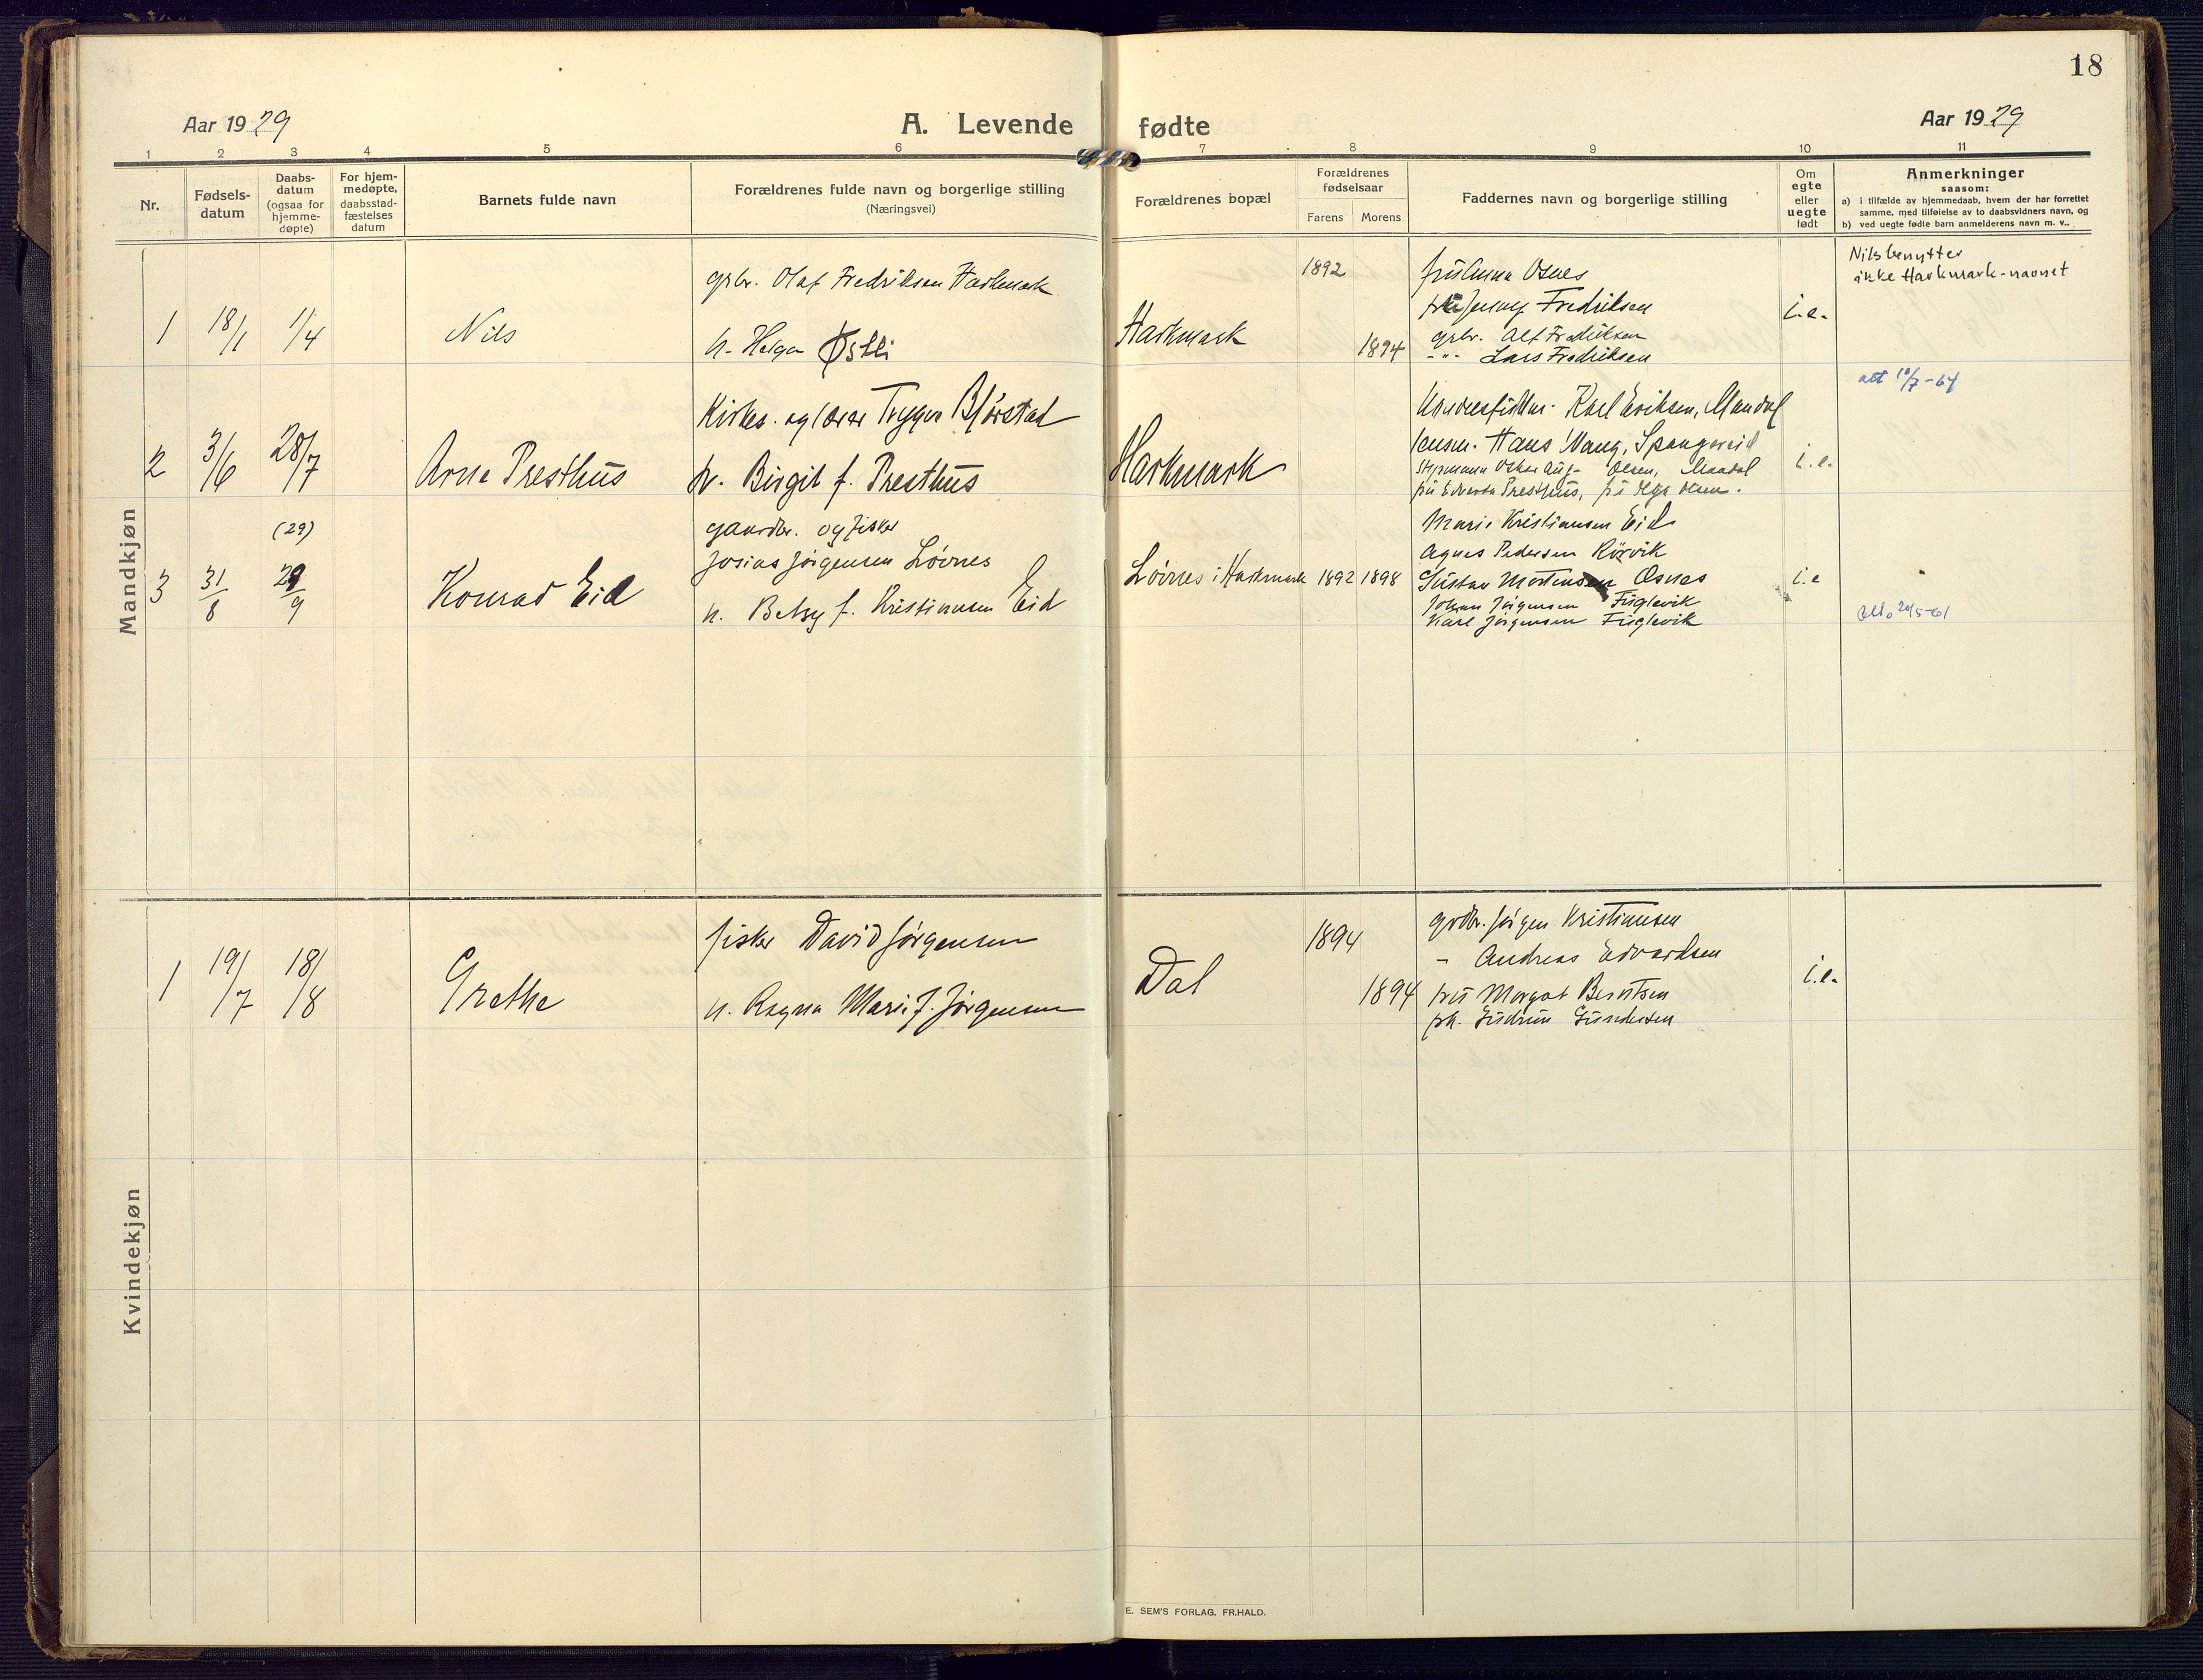 18
Aar 1929
A. Levende fødte
Aar 1929
1 2 3 4 5 6 7 8 9 10 11
Nr.
Fødsels-
datum
Daabs-
datum
(ogsaa for
hjemme-
døpte)
For hjem-
medøpte,
daabsstad-
fæstelses
datum
Barnets fulde navn
Forældrenes fulde navn og borgerlige stilling
(Næringsvei)
Forældrenes bopæl
Forældrenes
fødselsaar
Farens Morens
Faddernes navn og borgerlige stilling
Om
egte
eller
uegte
født
Anmerkninger
saasom:
a) i tilfælde av hjemmedaab, hvem der har forrettet
samme, med tilføielse av to daabsvidners navn, og
b) ved uegte fødte barn anmelderens navn m. v..
Mandkjøn
1 18/1 1/4 Nils
grbr. Olaf Fredriksen Harkmark
h. Helga Østli
Harkmark
1892
1894
frü Anna Osnes
Jenny Fredriksen
grbr. Alf Fredriksen
-"- Lars Fredriksen
i.e.
Nils benytter
ikke Harkmark-navnet
2 3/6 28/7 Arne Presthüs
Kirkes. og lærer Trygve Bjørstad
h. Birgit f. Presthüs
Harkmark
Karl Eriksen, Mandal
lensm. Hans Vang, Spangereid
Olsen, Mandal
frü Edvarda Presthüs, frü Olsen.
i.e.
att 10/7-64
3 31/8 (29) 29/9 Konrad Eid
gaardbr. og fisker
Josias Jørgensen Løvnes
h. Betsy f. Kristiansen Eid
Løvnes i Harkmark 1892 1898
Marie Kristiansen Eid
Agnes Pedersen Rörvik
Güstav Mortensen Osnes
Johan Jörgensen Füglevik
Karl Jörgensen Füglevik
i.e
Kvindekjøn
1 19/7 18/8 Grethe
fisker David Jörgensen
h. Ragna Marie f. Jörgensen
Dal
1894
1894
grdbr. Jörgen Kristiansen
- Andreas Edvardsen
frü Margot Berntsen
frk. Güdrün Gündersen
i.e.
E. SEM'S FORLAG. FR.HALD.